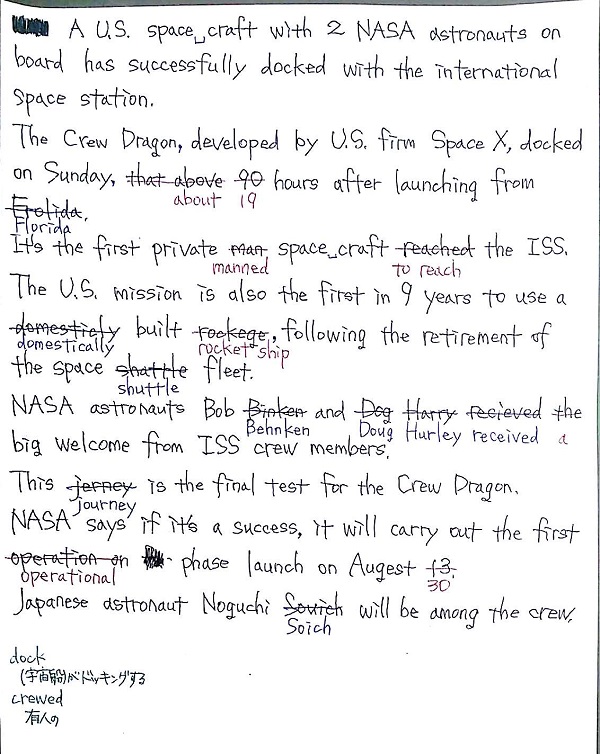 A U.S. space craft with 2 NASA astronauts on
board has successfully docked with the international
space station.
The Crew Dragon, developed by U.S. firm Space X, docked
on Sunday, that above 90 hours after launching from
about 19
Erolida,
Florida
It's the first private man space craft reached the ISS.
manned to reach
The U.S. mission is also the first in 9 years to use a
domesticly built rockege, following the retirement of
domestically rocket ship
the space shattle fleet.
shuttle
NASA astronauts Bob Binken and Dog Harry recieved the
Behnken Doug Hurley received a
big welcome from ISS crew members.
This jerney is the final test for the Crew Dragon.
journey
NASA says if it's a success, it will carry out the first
operation on phase launch on Augest 13.
operational 30
Japanese astronaut Noguchi Souich will be among the crew.
Soich
dock
(宇宙船)がドッキングする
crewed
有人の